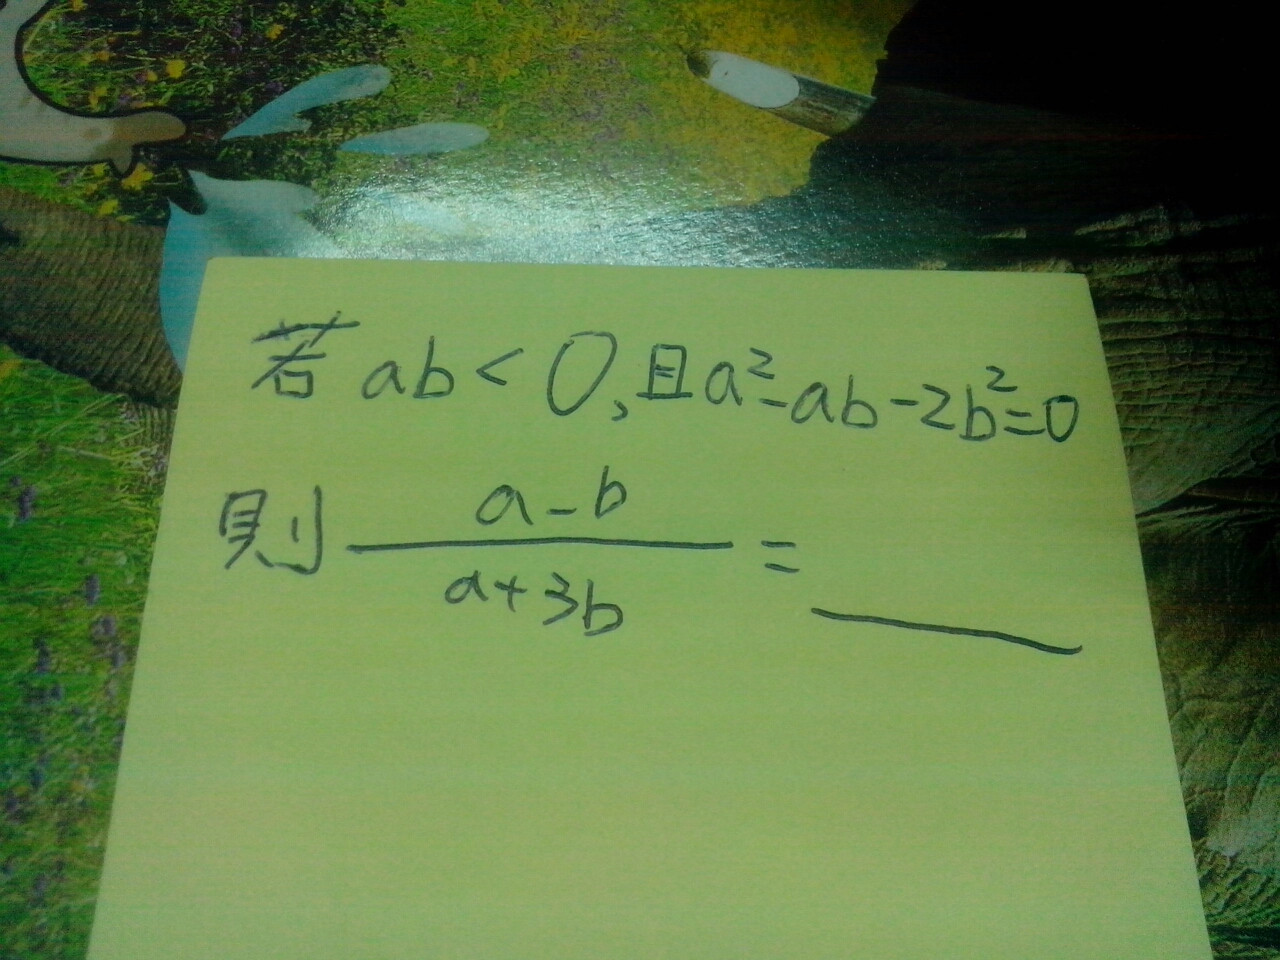 若 ab < 0, 且 a²-ab-2b²=0
則 \frac{a-b}{a+3b} = ____